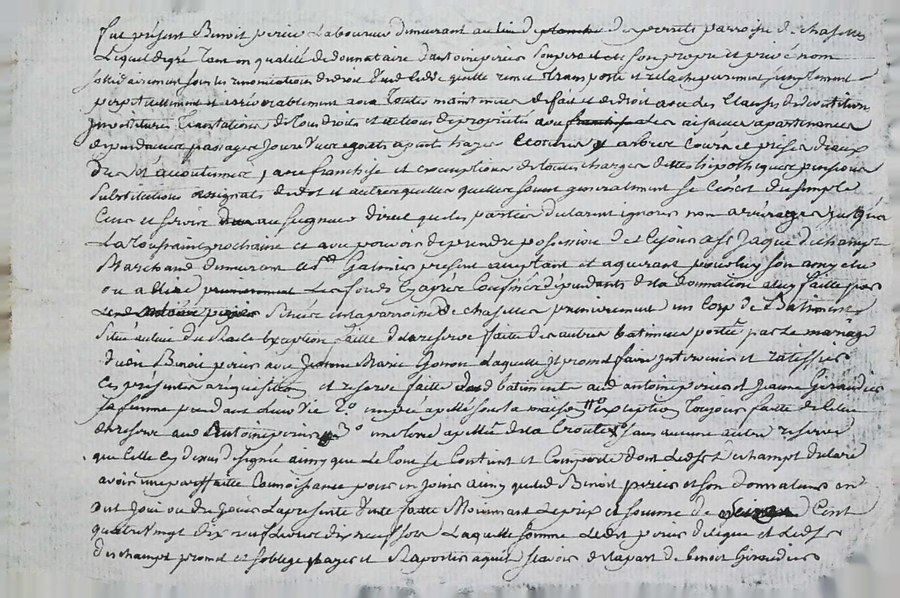 fut présent Benoit perier Laboureur demeurant au lieu de planche des perrets parroisse de chaselles
Lequel degré tant en qualité de donnataire d'antoine perier son pere et en son propre et privé nom
sollidairement sous les renonciations de droit Vend cede quitte remet transporte et relache purement simplement
perpetuellement et irrévocablement avec toutes maintenues de fait et de droit avec des Clauses de devestition
Investitures translations de tous droits et actions de proprietés avec franchise et les aisances apartenances
dependances passages Jours Vues egouts apants hayes et arbres Cours et prises d'eaux
Du sol acoutumés, avec franchise et exemptions de toutes charges dettes hipotheques pensions
Substitutions assignats de dot et autres quelles quelles soient generallement si Ce n'est du simple
Cens et servis au seigneur direct que les parties declarent ignorer non arrerages jusqua
La toussaint prochaine et avec pouvoir de prendre possession de ce Lejour a Sr Jaque dechampt
Marchand demeurant a St Galmier present acceptant et aquerant pour luy son amy elu
ou a elire Les fonds Cy après Confinés dépendants de la donnation a luy faitte par
Led antoine perier Situés en la parroisse de chaselles premierement un Corp de Batiment
Situé au lieu du exception faitte de la reserve faitte des autres batiments portée par Le mariage
dud Benoit perier avec Jeanne Marie Gonon Laquelle Il promet faire Intervenir et ratiffier
Ces presentes a requisition et reserve faitte dud batiment aud antoine perier et Jeanne Giraudier
sa femme pendant Leur Vie 2o un pré apellé sous la maison exception toujours faitte de celui
de reserve aud Antoine perier 3o une terre apellée de la Croute sans aucune autre reserve
que Celle Cy dessus designée ainsy que Le tout se Contient et Comporte dont Led sr dechampt declare
avoir une parffaitte Connoissance pour en Jouir ainsy que led Benoit perier et son donnateur en
ont Joui ou du Jouir La presente Vente faitte Moienant Le prix et somme de Cent
quatre Vingt dix neuf Livres dix neuf sols Laquelle somme Ledit perier delegue et Led sr
dechampt promet et s'oblige payer et raporter aquit sçavoir de la part de benoit Giraudier